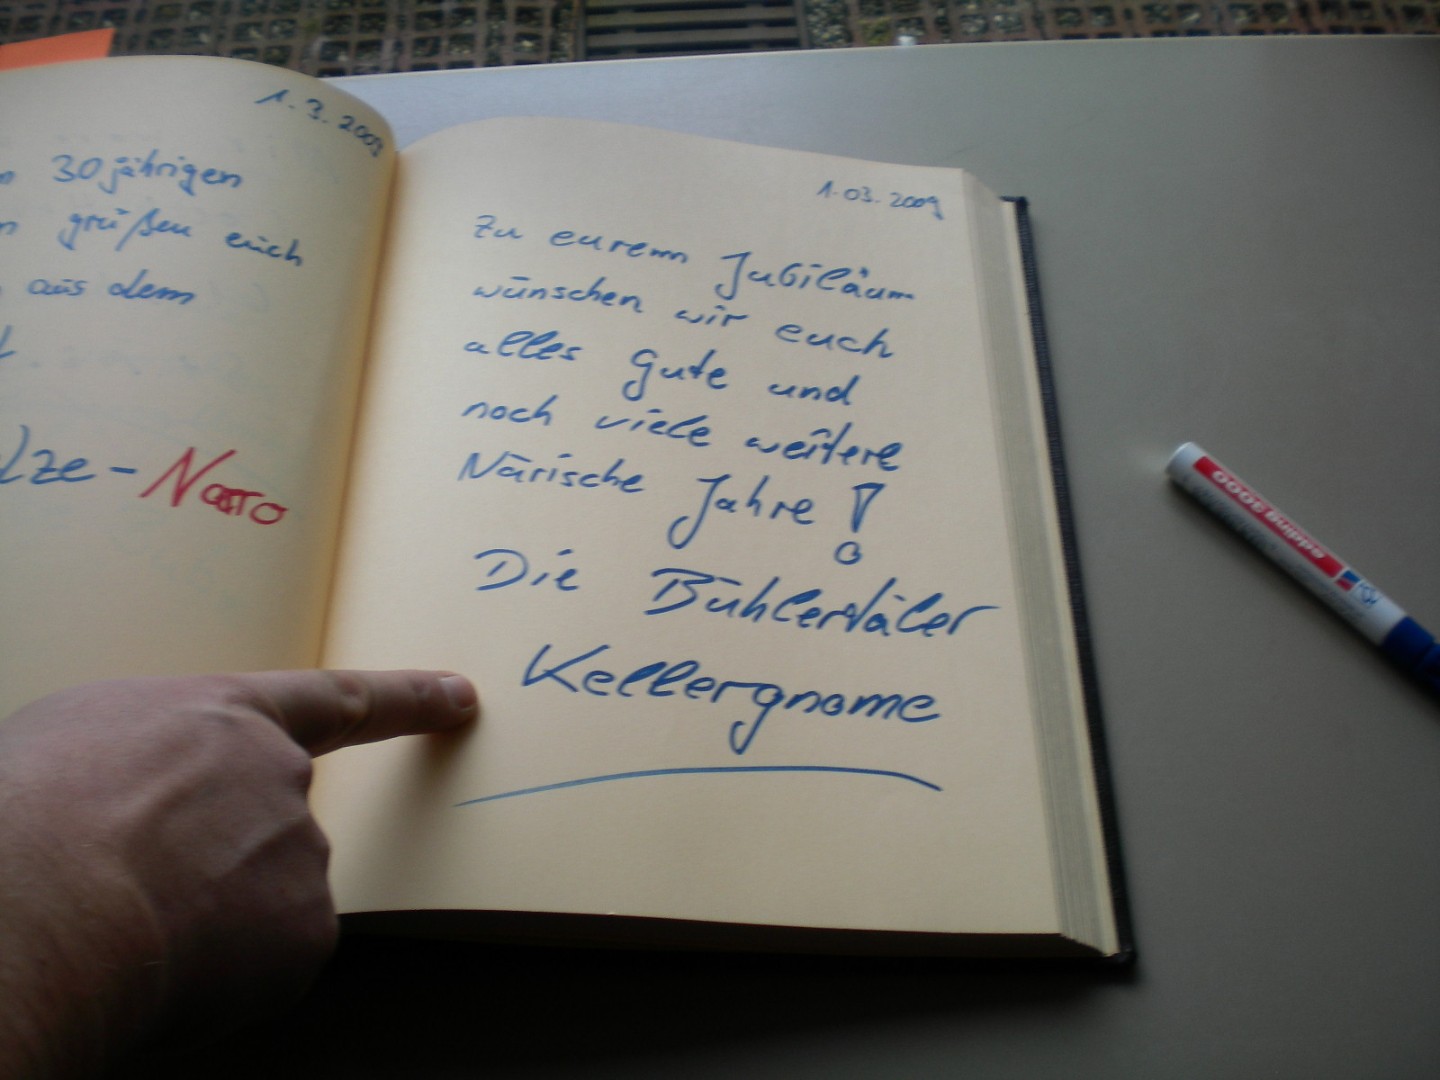 1.3.2009
30jährigen
grüßen euch
aus dem
lze-Narro
1.03.2009
Zu eurem Jubiläum
wünschen wir euch
alles Gute und
noch viele weitere
Närische Jahre!
Die Bühlertäler
Kellergnome
edding 3000